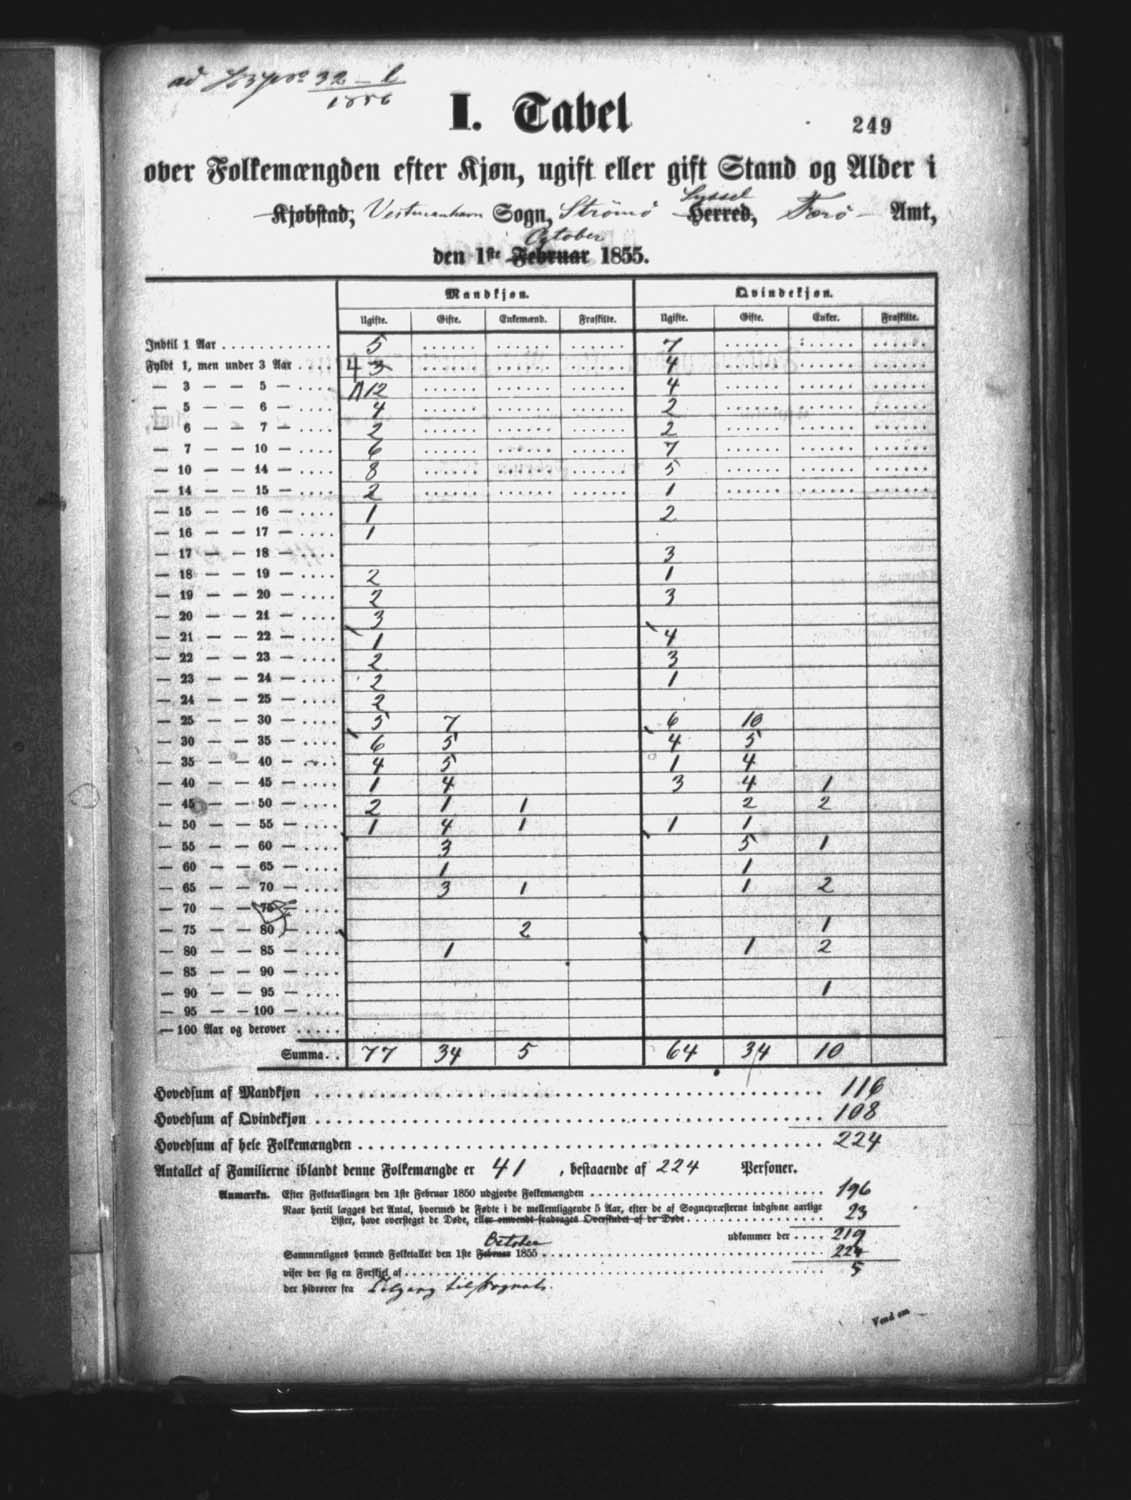 ad 32 - l
1856
I. Tabel
249
over Folkemængden efter Kjøn, ugift eller gift Stand og Alder i
Syssel
Kjøbstad, Vestmanhavn Sogn, Strömö Herred, Færö Amt,
October
den 1ste Februar 1855.
Mandkjøn. Qvindekjøn.
Ugifte. Gifte. Enkemænd. Fraskilte. Ugifte. Gifte. Enker. Fraskilte.
Indtil 1 Aar 5 7
Fyldt 1, men under 3 Aar 4 3 4
— 3 — — 5 — 12 4
— 5 — — 6 — 4 2
— 6 — — 7 — 2 2
— 7 — — 10 — 6 7
— 10 — — 14 — 8 5
— 14 — — 15 — 2 1
— 15 — — 16 — 1 2
— 16 — — 17 — 1
— 17 — — 18 — 3
— 18 — — 19 — 2 1
— 19 — — 20 — 2 3
— 20 — — 21 — 3
— 21 — — 22 — 1 4
— 22 — — 23 — 2 3
— 23 — — 24 — 2 1
— 24 — — 25 — 2
— 25 — — 30 — 5 7 6 10
— 30 — — 35 — 6 5 4 5
— 35 — — 40 — 4 5 1 4
— 40 — — 45 — 1 4 3 4 1
— 45 — — 50 — 2 1 1 2 2
— 50 — — 55 — 1 4 1 1 1
— 55 — — 60 — 3 5 1
— 60 — — 65 — 1 1
— 65 — — 70 — 3 1 1 2
— 70 — — 75 —
— 75 — — 80 — 2 1
— 80 — — 85 — 1 1 2
— 85 — — 90 —
— 90 — — 95 — 1
— 95 — — 100 —
— 100 Aar og derover
Summa.. 77 34 5 64 34 10
Hovedsum af Mandkjøn 116
Hovedsum af Qvindekjøn 108
Hovedsum af hele Folkemængden 224
Antallet af Familierne iblandt denne Folkemængde er 41, bestaaende af 224 Personer.
Anmærkn. Efter Folketællingen den 1ste Februar 1850 udgjorde Folkemængden 196
Naar hertil lægges det Antal, hvormed de Fødte i de mellemliggende 5 Aar, efter de af Sognepræsterne indgivne aarlige
Lister, have oversteget de Døde, eller omvendt fradrages Overskudet af de Døde 23
udkommer der 219
October
Sammenlignes hermed Folketallet den 1ste Februar 1855 224
viser der sig en Forskjel af 5
der hidrører fra
Vend om